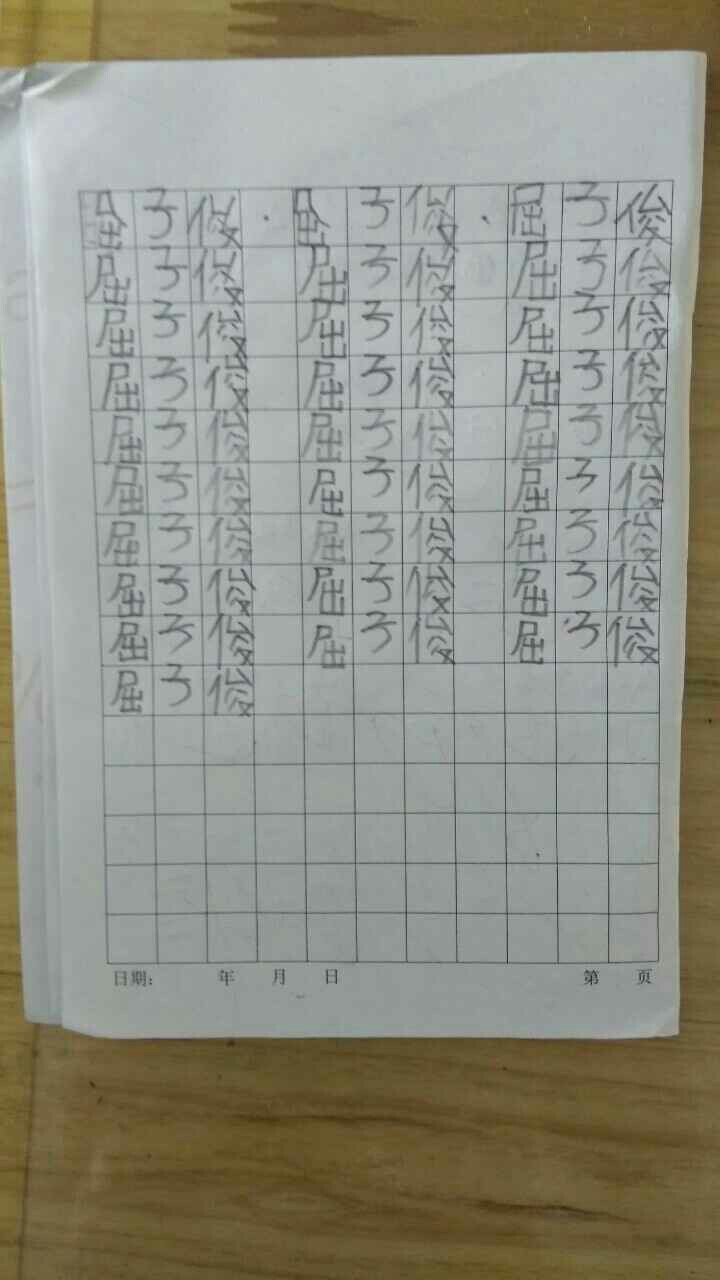 屈子俊 屈子俊 屈子俊
屈子俊 屈子俊 屈子俊
屈子俊 屈子俊 屈子俊
屈子俊 屈子俊 屈子俊
屈子俊 屈子俊 屈子俊
屈子俊 屈子俊 屈子俊
屈子俊 屈子俊 屈子俊
屈子俊 屈子俊 屈子俊
屈子俊 屈子俊 屈子俊
屈子俊
日期： 年 月 日 第 页